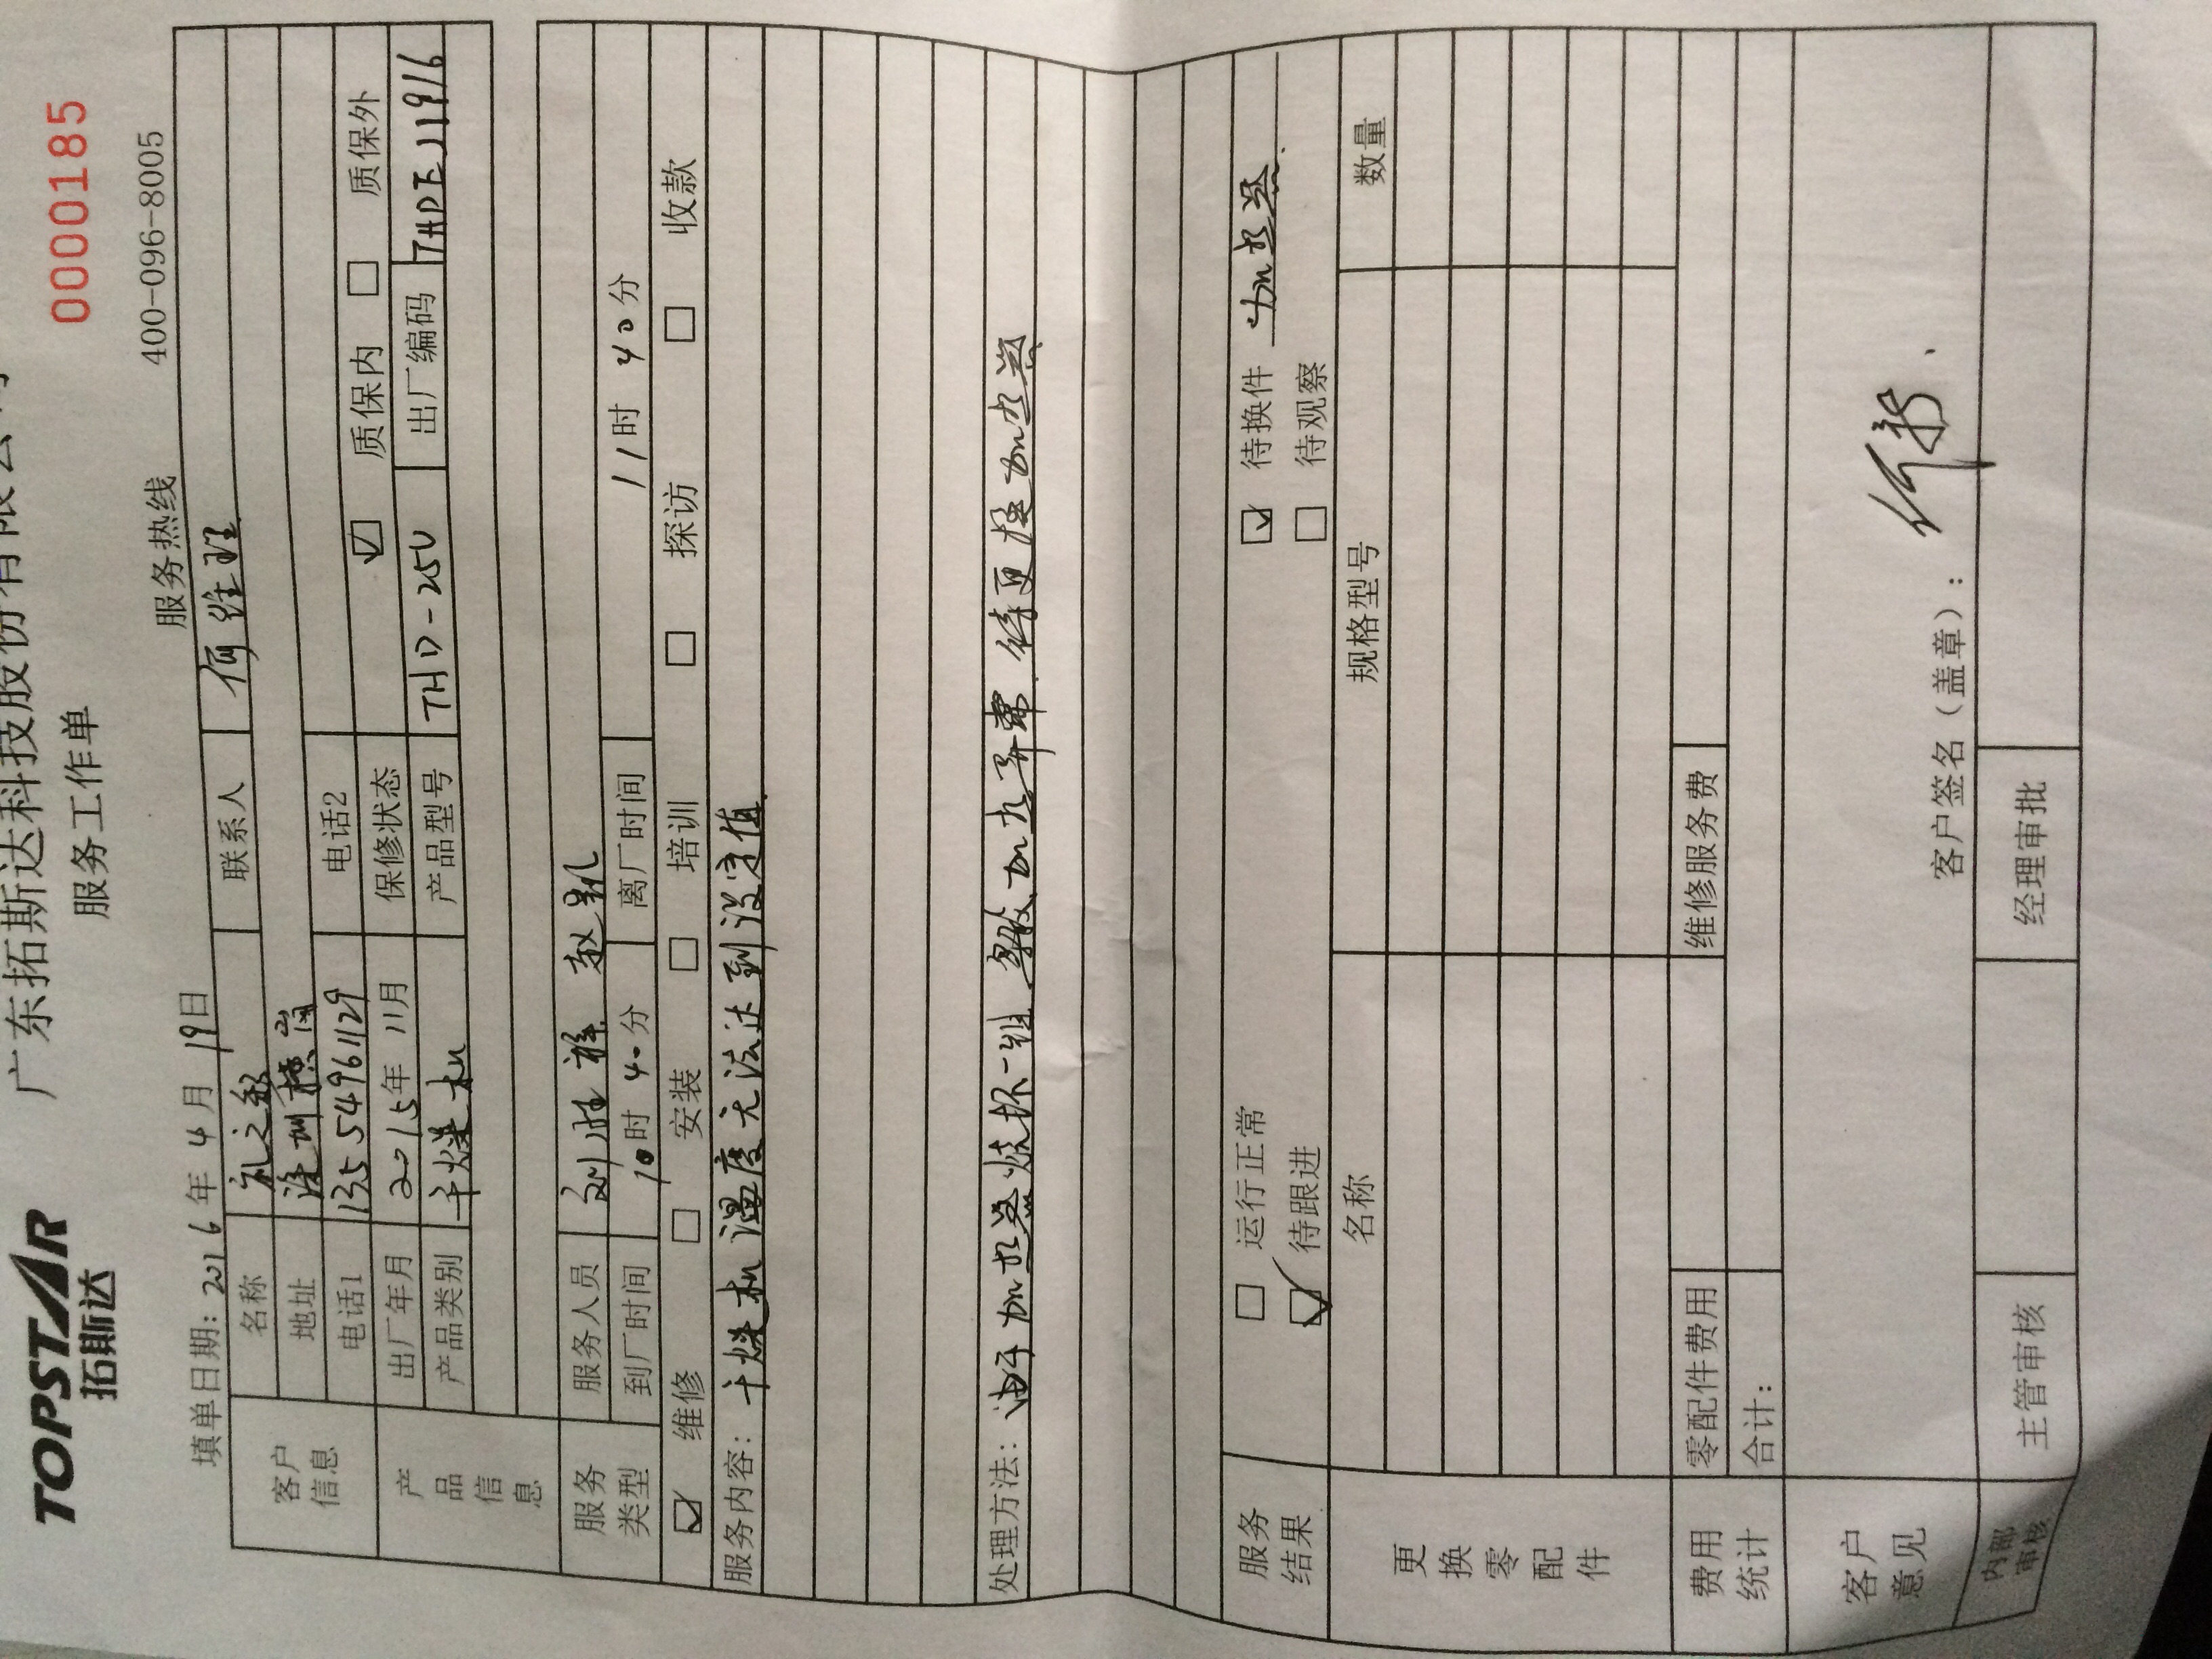 TOPSTAR
拓斯达
广东拓斯达科技股份有限公司
0000185
服务工作单
填单日期: 2016 年 4 月 19 日
服务热线 400-096-8005
客户信息
名称 礼之 联系人 何
地址 深圳横岗
电话1 13554961129 电话2
产品信息
出厂年月 2015年 11月 保修状态 ☑ 质保内 □ 质保外
产品类别 干燥机 产品型号 THD-25U 出厂编码 THDEJ11916
服务类型
服务人员 刘 赵
到厂时间 10时 40分 离厂时间 11时 40分
☑ 维修 □ 安装 □ 培训 □ 探访 □ 收款
服务内容: 干燥机温度无法达到设定值.
处理方法: 由于加热器烧坏一组 导致加热异常. 待更换加热器
服务结果
□ 运行正常 ☑ 待换件 加热器.
☑ 待跟进 □ 待观察
更换零配件
名称 规格型号 数量
费用统计
零配件费用 维修服务费
合计:
客户意见
客户签名（盖章）:
内部审核
主管审核 经理审批